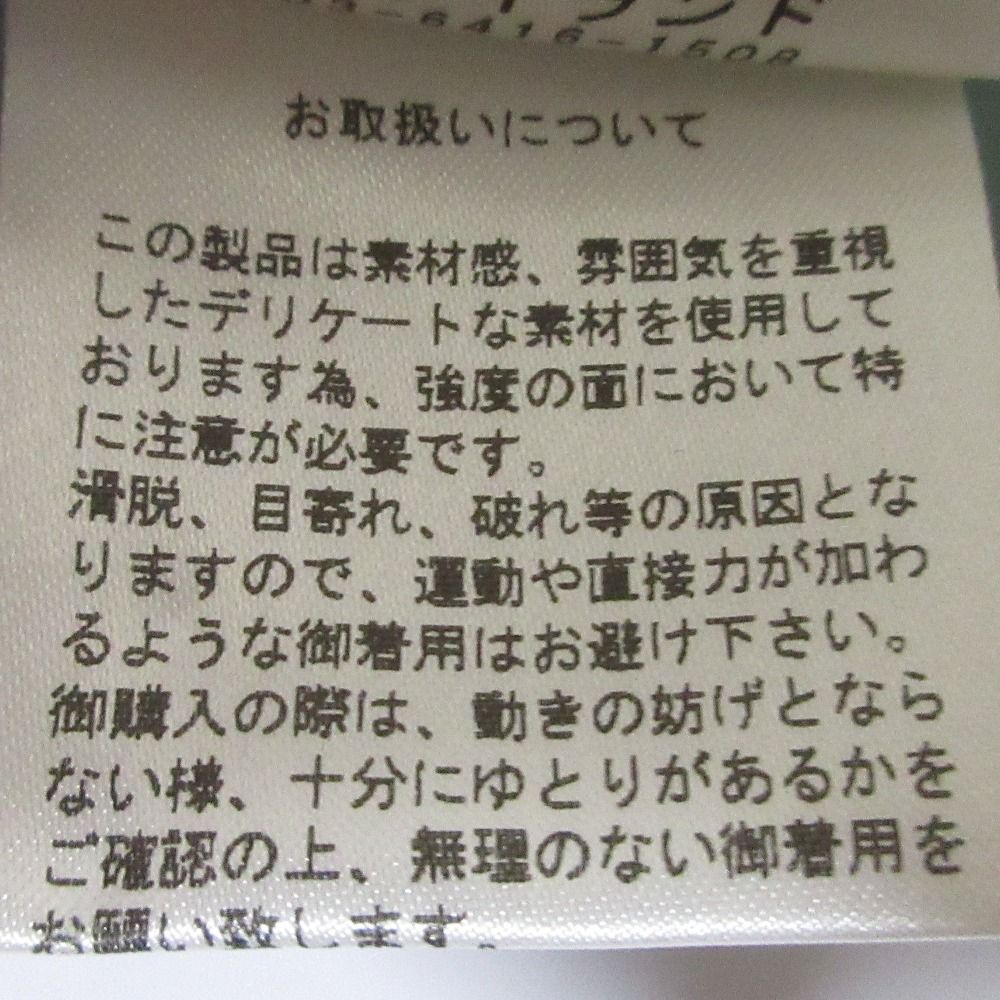 ランド
-6416-1508
お取扱いについて
この製品は素材感、雰囲気を重視
したデリケートな素材を使用して
おります為、強度の面において特
に注意が必要です。
滑脱、目寄れ、破れ等の原因とな
りますので、運動や直接力が加わ
るような御着用はお避け下さい。
御購入の際は、動きの妨げとなら
ない様、十分にゆとりがあるかを
ご確認の上、無理のない御着用を
お願い致します。